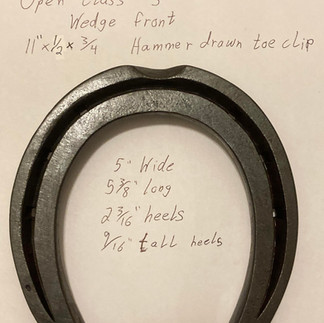 Open Class
Wedge front
11" x 1/2 x 3/4 Hammer drawn toe clip
5" Wide
5 3/8" long
2 3/16" heels
9/16" tall heels